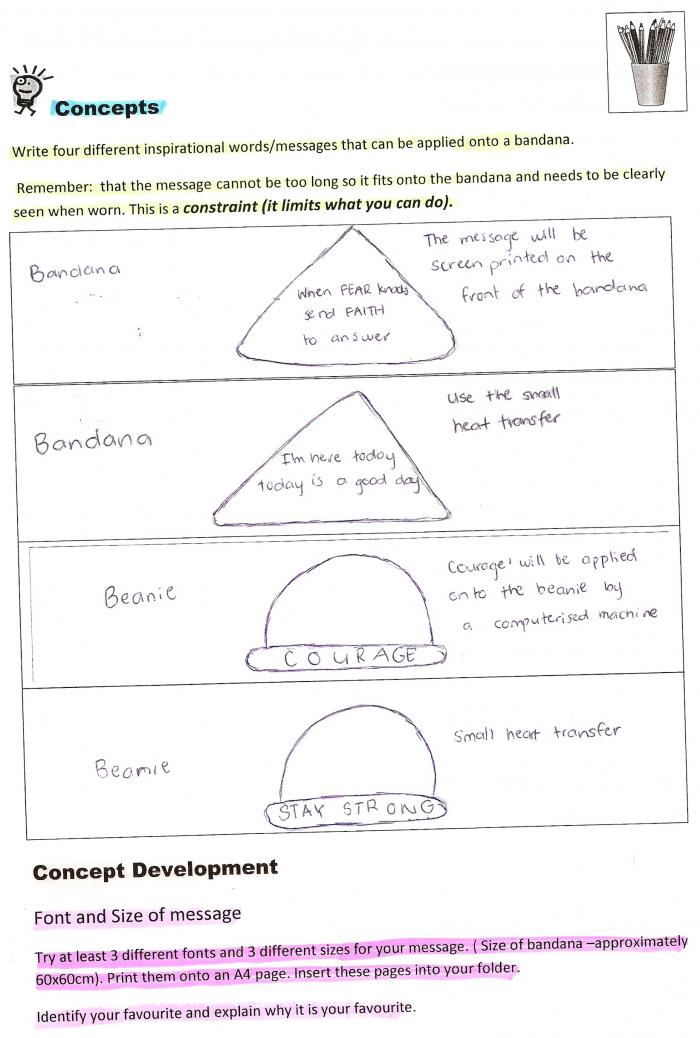 Concepts
Write four different inspirational words/messages that can be applied onto a bandana.
Remember: that the message cannot be too long so it fits onto the bandana and needs to be clearly
seen when worn. This is a constraint (it limits what you can do).
Bandana
When FEAR knocks
send FAITH
to answer
The message will be
screen printed on the
front of the bandana
Bandana
I'm here today
today is a good day
Use the small
heat transfer
Beanie
COURAGE
Courage' will be applied
onto the beanie by
a computerised machine
Beanie
STAY STRONG
Small heart transfer
Concept Development
Font and Size of message
Try at least 3 different fonts and 3 different sizes for your message. ( Size of bandana –approximately
60x60cm). Print them onto an A4 page. Insert these pages into your folder.
Identify your favourite and explain why it is your favourite.